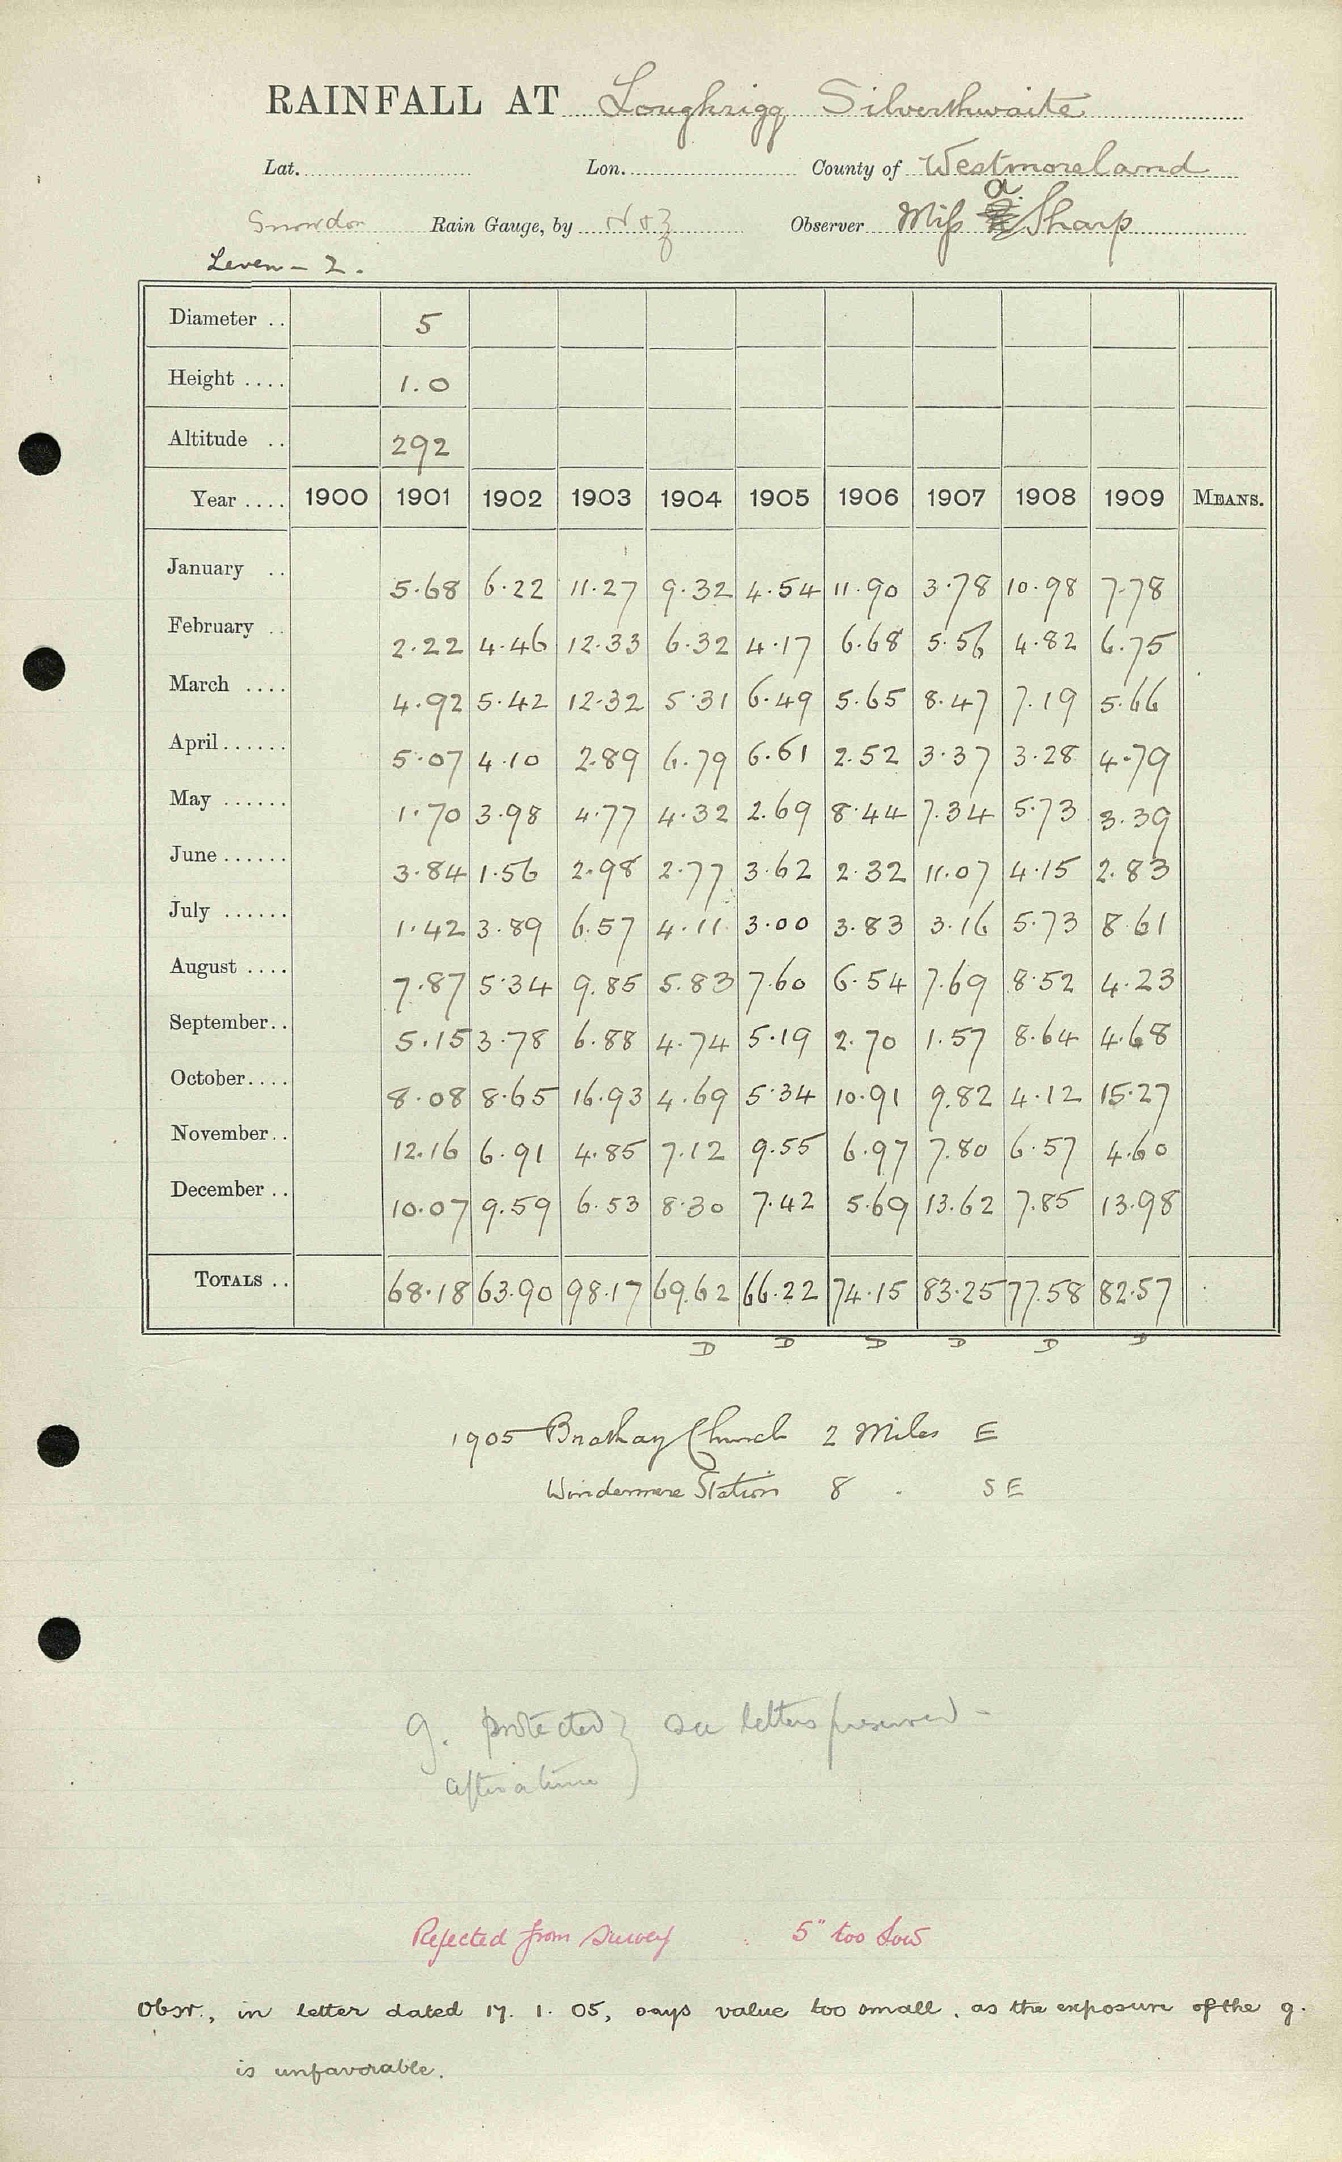 RAINFALL AT Loughrigg Silverthwaite
Lat. Lon. County of Westmoreland
Snowdon Rain Gauge, by N & Z Observer Miss a Sharp
Leven - 2.
Diameter .. 5
Height .... 1.0
Altitude .. 292
Year .... 1900 1901 1902 1903 1904 1905 1906 1907 1908 1909 MEANS.
January .. 5.68 6.22 11.27 9.32 4.54 11.90 3.78 10.98 7.78
February .. 2.22 4.46 12.33 6.32 4.17 6.68 5.56 4.82 6.75
March .... 4.92 5.42 12.32 5.31 6.49 5.65 8.47 7.19 5.66
April...... 5.07 4.10 2.89 6.79 6.61 2.52 3.37 3.28 4.79
May ...... 1.70 3.98 4.77 4.32 2.69 8.44 7.34 5.73 3.39
June...... 3.84 1.56 2.98 2.77 3.62 2.32 11.07 4.15 2.83
July ...... 1.42 3.89 6.57 4.11 3.00 3.83 3.16 5.73 8.61
August .... 7.87 5.34 9.85 5.83 7.60 6.54 7.69 8.52 4.23
September.. 5.15 3.78 6.88 4.74 5.19 2.70 1.57 8.64 4.68
October.... 8.08 8.65 16.93 4.69 5.34 10.91 9.82 4.12 15.27
November.. 12.16 6.91 4.85 7.12 9.55 6.97 7.80 6.57 4.60
December .. 10.07 9.59 6.53 8.30 7.42 5.69 13.62 7.85 13.98
TOTALS .. 68.18 63.90 98.17 69.62 66.22 74.15 83.25 77.58 82.57
D D D D D D
1905 Brathay Church 2 Miles E
Windermere Station 8 . SE
g. protected } see letters preserved -
after a time
Rejected from Survey 5" too low
Obsr., in letter dated 17. 1. 05, says value too small, as the exposure of the g.
is unfavorable.